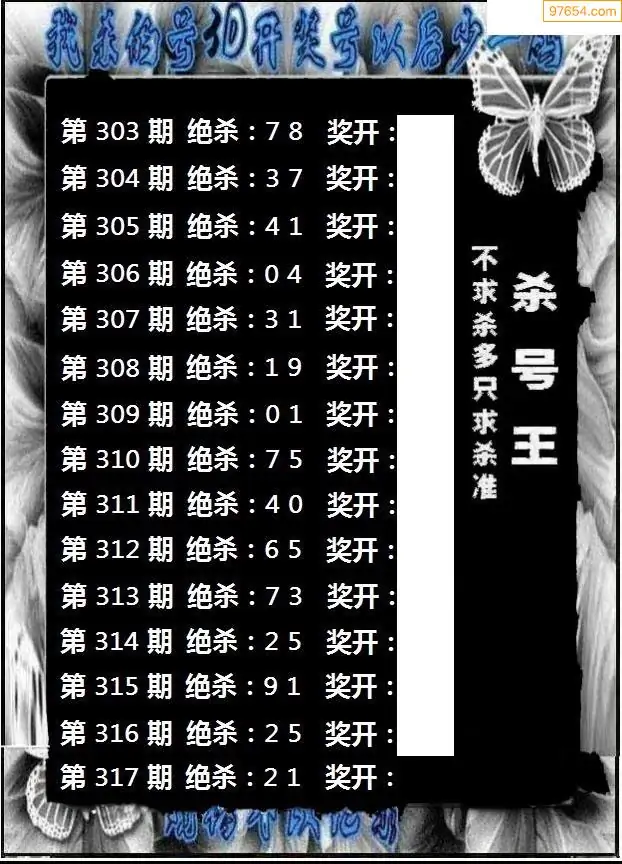 97654.com
我杀的号3D开奖号以后少一码
第 303 期 绝杀：7 8 奖开：
第 304 期 绝杀：3 7 奖开：
第 305 期 绝杀：4 1 奖开：
第 306 期 绝杀：0 4 奖开：
第 307 期 绝杀：3 1 奖开：
第 308 期 绝杀：1 9 奖开：
第 309 期 绝杀：0 1 奖开：
第 310 期 绝杀：7 5 奖开：
第 311 期 绝杀：4 0 奖开：
第 312 期 绝杀：6 5 奖开：
第 313 期 绝杀：7 3 奖开：
第 314 期 绝杀：2 5 奖开：
第 315 期 绝杀：9 1 奖开：
第 316 期 绝杀：2 5 奖开：
第 317 期 绝杀：2 1 奖开：
杀号王
不求杀多只求杀准